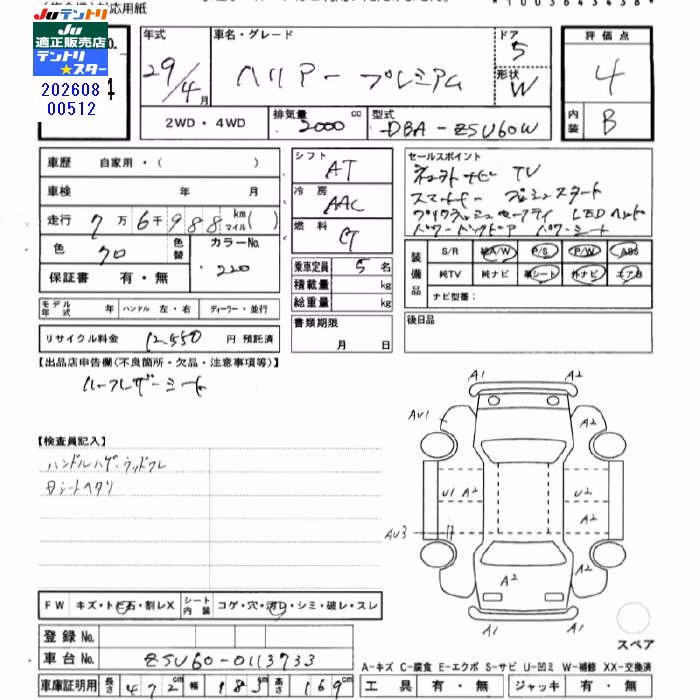 (複合機)対応用紙
*1003643438*
Juテントリ
Ju
適正販売店
テントリ
★スター
202608
00512
年式 29/4月
車名・グレード ハリアー プレミアム
ドア 5
形状 W
評価点 4
内装 B
2WD・4WD
排気量 2000 cc
型式 DBA-ZSU60W
車歴 自家用・( )
車検 年 月
走行 7万6千988 km マイル( )
色 クロ 色替 カラーNo. 220
保証書 有・無
モデル年式 年 ハンドル 左・右 ディーラー・並行
リサイクル料金 12,550 円 預託済
シフト AT
冷房 AAC
燃料
乗車定員 5名
積載量 kg
総重量 kg
書類期限
月 日
セールスポイント
ナビ TV
スマートキー プッシュスタート
プリクラッシュセーフティ LEDヘッド
パワーバックドア パワーシート
装備品 S/R 純A/W P/S P/W ABS
純TV 純ナビ 革シート 外ナビ エアB
ナビ型番:
後日品
【出品店申告欄(不良箇所・欠品・注意事項等)】
ハーフレザーシート
【検査員記入】
ハンドルハゲ・ウッドクレ
Dシートヘタリ
A1 A2
AU1 A2
U1 A2 U2
A2
AU3
A2 A2
A1 A1
スペア
FW キズ・トビ石・割レX シート内装 コゲ・穴・汚レ・シミ・破レ・スレ
登録No.
車台No. ZSU60-0113733
車庫証明用 長さ 472cm 幅 183cm 高さ 169cm
A-キズ C-腐食 E-エクボ S-サビ U-凹ミ W-補修 XX-交換済
工具 有・無 ジャッキ 有・無